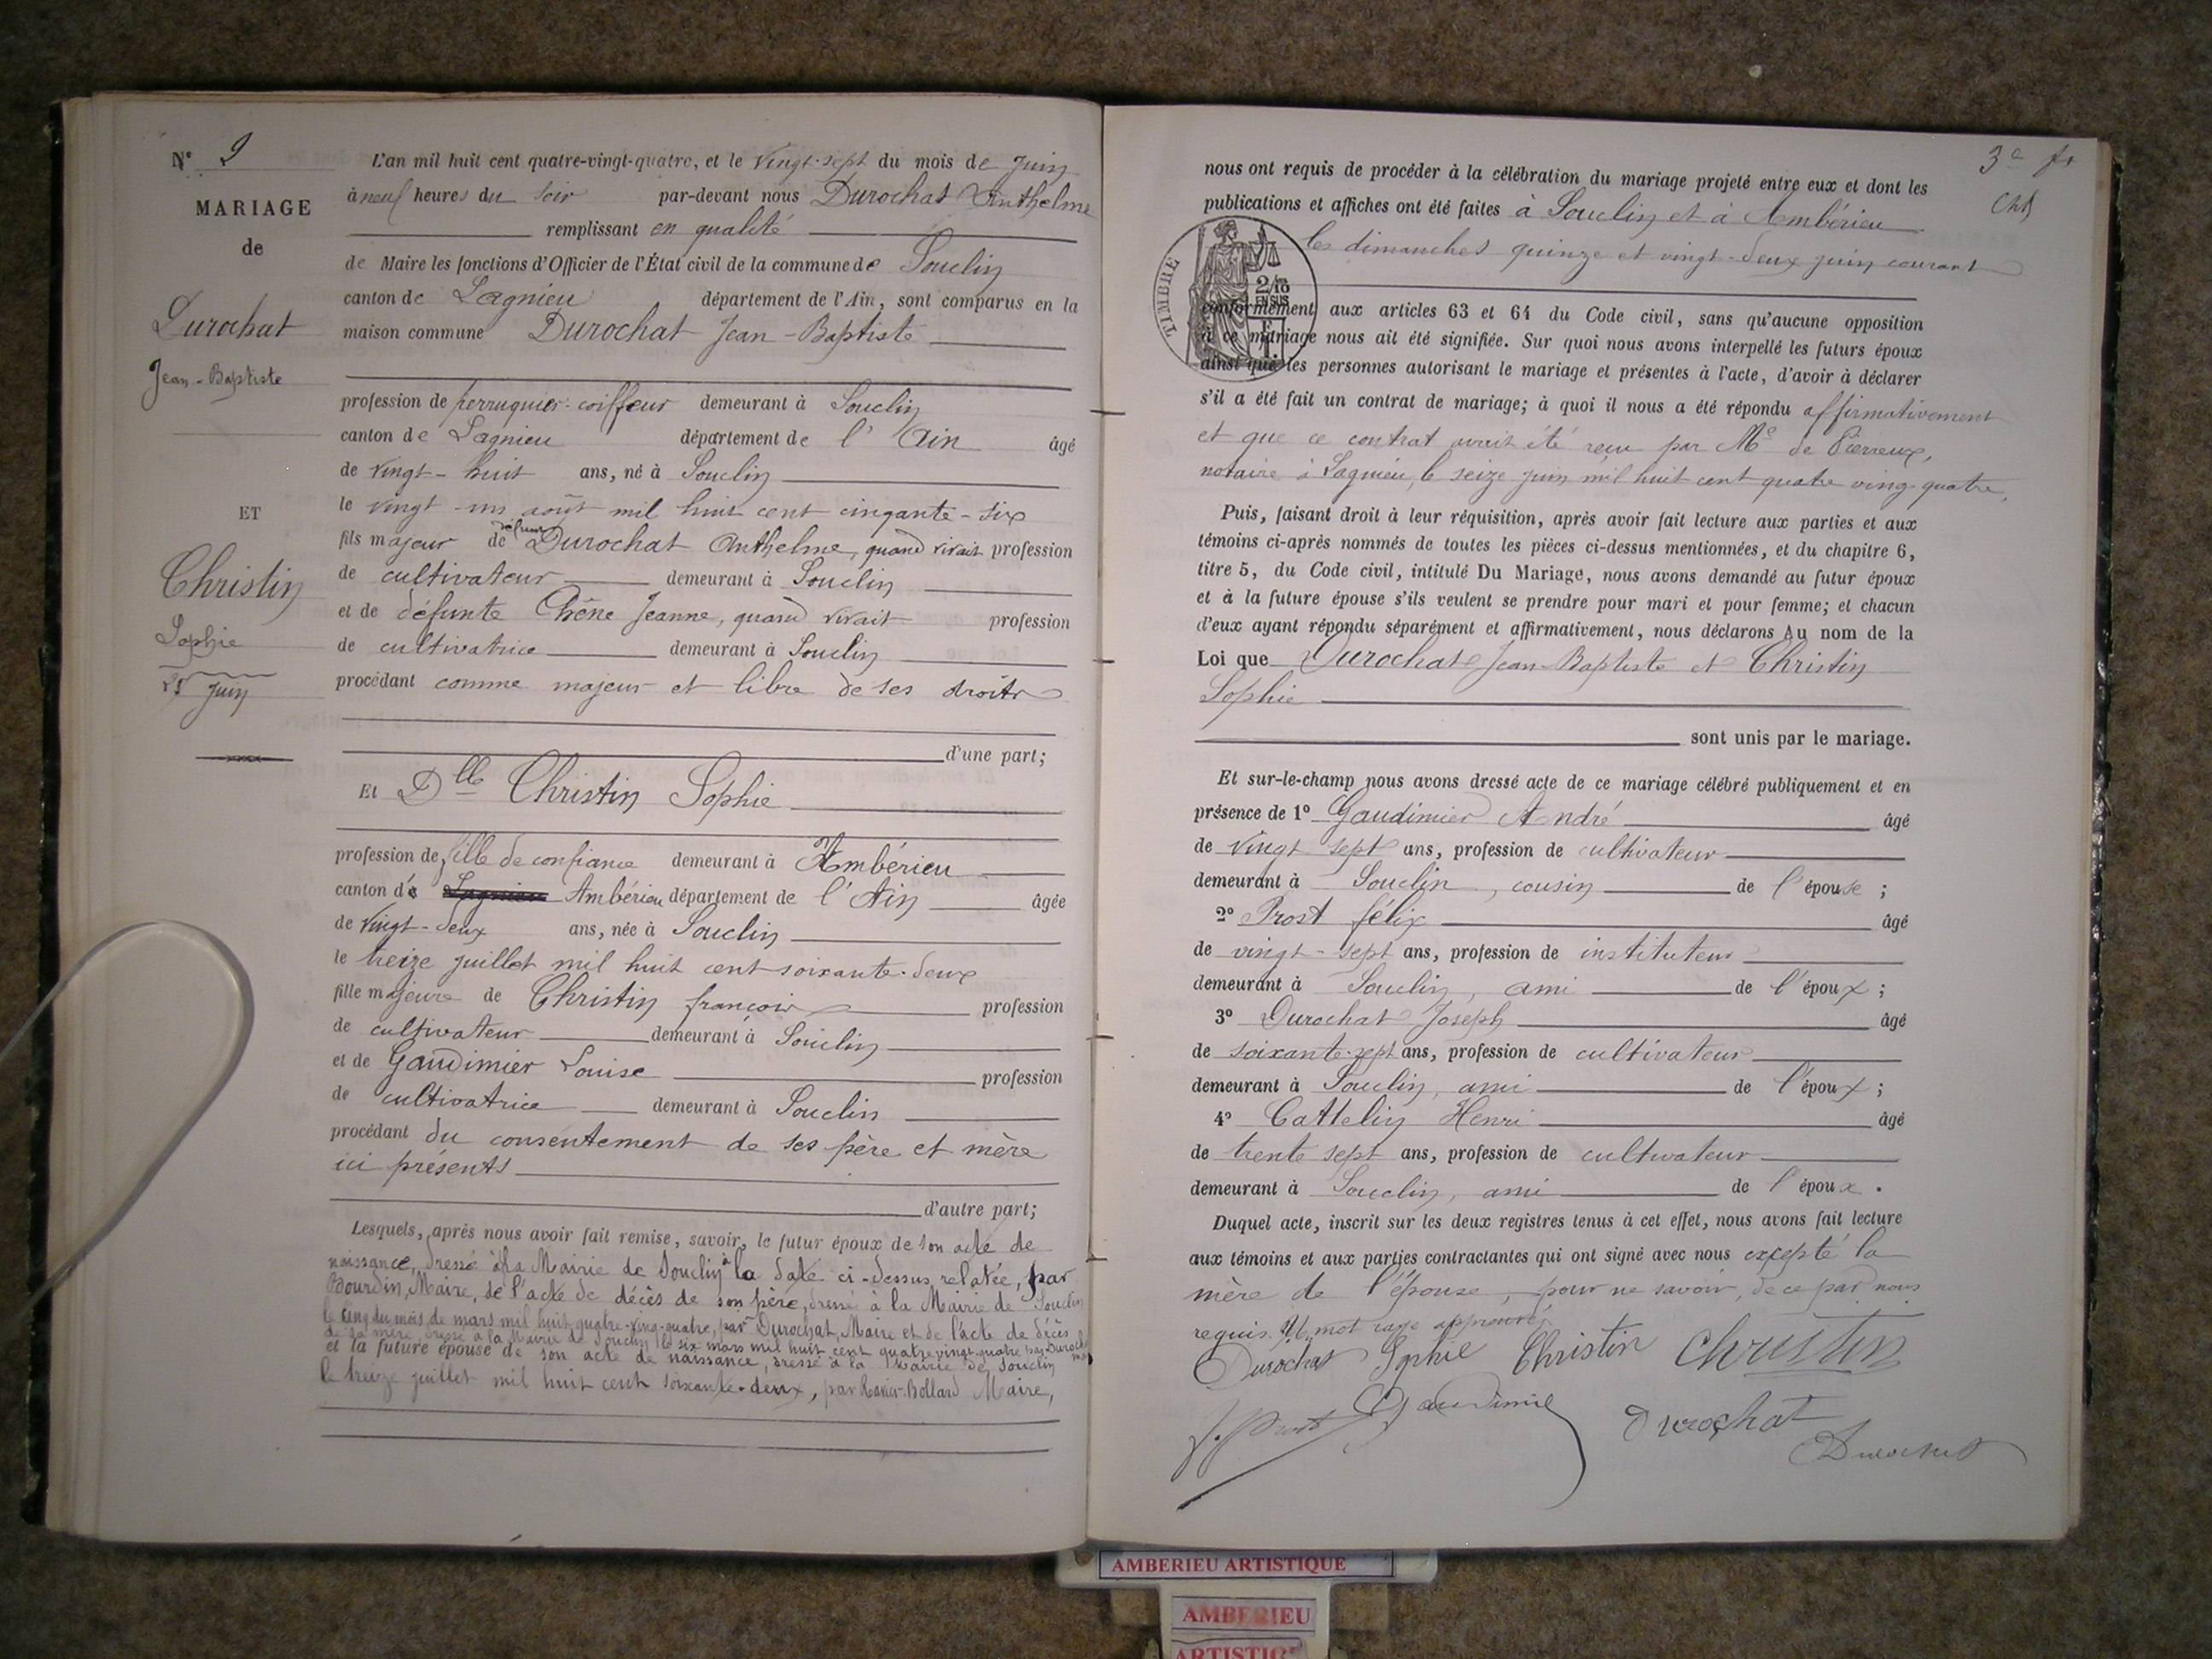 N° 2
MARIAGE
de
Durochat
Jean-Baptiste
ET
Christin
Sophie
juin
L'an mil huit cent quatre-vingt-quatre, et le vingt-sept du mois de juin
à neuf heures du soir par-devant nous Durochat Anthelme
remplissant en qualité
de Maire les fonctions d'Officier de l'État civil de la commune de Souclin
canton de Lagnieu département de l'Ain, sont comparus en la
maison commune Durochat Jean-Baptiste
profession de perruquier-coiffeur demeurant à Souclin
canton de Lagnieu département de l'Ain âgé
de vingt-huit ans, né à Souclin
le vingt-un août mil huit cent cinquante-six
fils majeur de défunt Durochat Anthelme, quand vivait profession
de cultivateur demeurant à Souclin
et de défunte Chêne Jeanne, quand vivait profession
de cultivatrice demeurant à Souclin
procédant comme majeur et libre de ses droits
d'une part;
Et Dlle Christin Sophie
profession de fille de confiance demeurant à Ambérieu
canton d' Ambérieu département de l'Ain âgée
de vingt-deux ans, née à Souclin
le treize juillet mil huit cent soixante-deux
fille majeure de Christin françois profession
de cultivateur demeurant à Souclin
et de Gaudimier Louise profession
de cultivatrice demeurant à Souclin
procédant du consentement de ses père et mère
ici présents
d'autre part;
Lesquels, après nous avoir fait remise, savoir, le futur époux de son acte de
naissance, dressé à la Mairie de Souclin à la date ci-dessus relatée, par
Bourdin, Maire, de l'acte de décès de son père, dressé à la Mairie de Souclin
le cinq du mois de mars mil huit quatre-ving-quatre, par Durochat, Maire et de l'acte de décès
de sa mère, dressé à la Mairie de Souclin le six mars mil huit cent quatre vingt quatre par Durochat
et la future épouse de son acte de naissance, dressé à la Mairie de Souclin
le treize juillet mil huit cent soixante-deux, par Ravier-Bollard Maire,
3e
nous ont requis de procéder à la célébration du mariage projeté entre eux et dont les
publications et affiches ont été faites à Souclin et à Ambérieu
les dimanches quinze et vingt-deux juin courant
TIMBRE
2/10
EN SUS
conformément aux articles 63 et 64 du Code civil, sans qu'aucune opposition
à ce mariage nous ait été signifiée. Sur quoi nous avons interpellé les futurs époux
ainsi que les personnes autorisant le mariage et présentes à l'acte, d'avoir à déclarer
s'il a été fait un contrat de mariage; à quoi il nous a été répondu affirmativement
et que ce contrat avait été reçu par Me de Pierreux,
notaire à Lagnieu, le seize juin mil huit cent quatre ving-quatre,
Puis, faisant droit à leur réquisition, après avoir fait lecture aux parties et aux
témoins ci-après nommés de toutes les pièces ci-dessus mentionnées, et du chapitre 6,
titre 5, du Code civil, intitulé Du Mariage, nous avons demandé au futur époux
et à la future épouse s'ils veulent se prendre pour mari et pour femme; et chacun
d'eux ayant répondu séparément et affirmativement, nous déclarons Au nom de la
Loi que Durochat Jean-Baptiste et Christin
Sophie
sont unis par le mariage.
Et sur-le-champ nous avons dressé acte de ce mariage célébré publiquement et en
présence de 1° Gaudimier André âgé
de vingt sept ans, profession de cultivateur
demeurant à Souclin, cousin de l'épouse;
2° Prost félix âgé
de vingt-sept ans, profession de instituteur
demeurant à Souclin, ami de l'époux;
3° Durochat Joseph âgé
de soixante-sept ans, profession de cultivateur
demeurant à Souclin, ami de l'époux;
4° Cattelin Henri âgé
de trente sept ans, profession de cultivateur
demeurant à Souclin, ami de l'époux.
Duquel acte, inscrit sur les deux registres tenus à cet effet, nous avons fait lecture
aux témoins et aux parties contractantes qui ont signé avec nous excepté la
mère de l'épouse, pour ne savoir, de ce par nous
requis. Un mot rayé approuvé.
Durochat Sophie Christin Christin
F. Prost Gaudimie Durochat
Durochat
AMBERIEU ARTISTIQUE
AMBERIEU
ARTISTIQUE